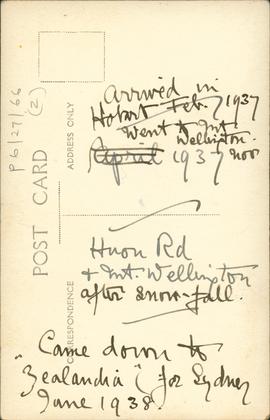 P6/27/66
(2)
POST CARD
ADDRESS ONLY
CORRESPONDENCE
Arrived in
Hobart Feb. 1937
Went to Mt.
Wellington
April 1937 Nov
Huon Rd
& Mt. Wellington
after snow-fall.
Came down to
"Zealandia" for Sydney
June 1938.